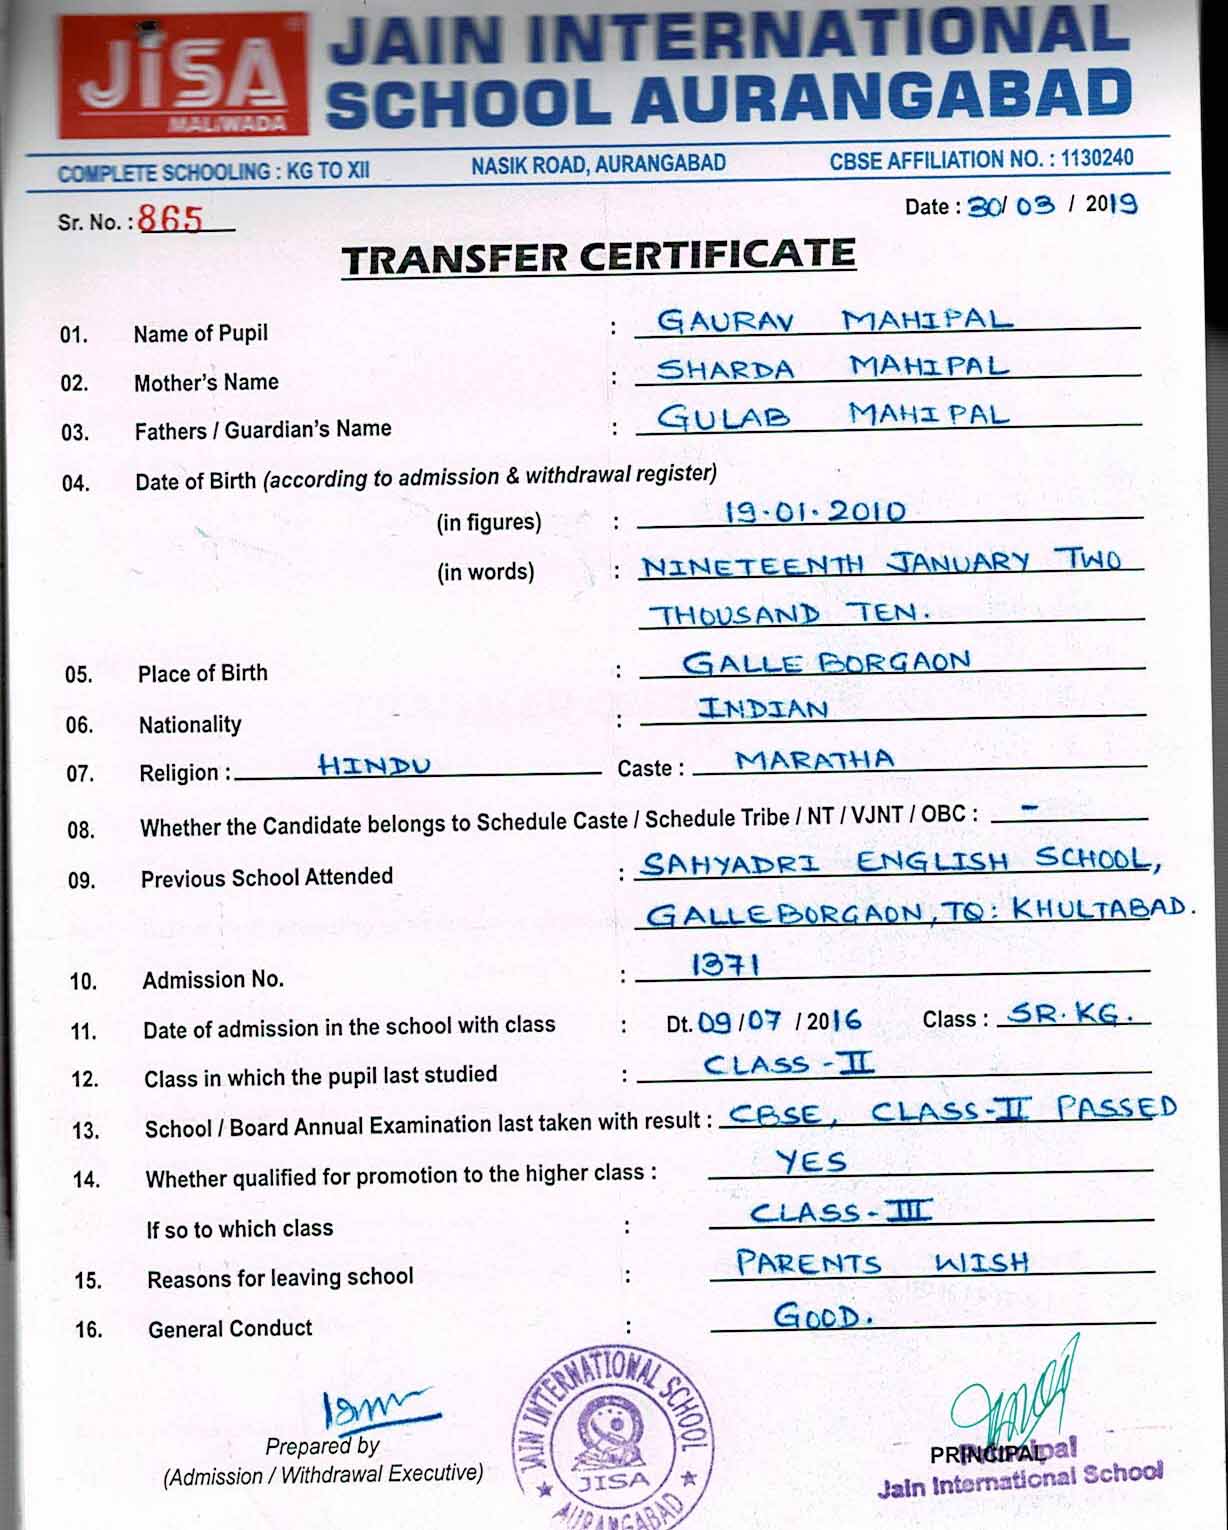 JiSA
MALIWADA
JAIN INTERNATIONAL
SCHOOL AURANGABAD
COMPLETE SCHOOLING : KG TO XII NASIK ROAD, AURANGABAD CBSE AFFILIATION NO. : 1130240
Sr. No. : 865 Date : 30/ 03 / 2019
TRANSFER CERTIFICATE
01. Name of Pupil : GAURAV MAHIPAL
02. Mother's Name : SHARDA MAHIPAL
03. Fathers / Guardian's Name : GULAB MAHIPAL
04. Date of Birth (according to admission & withdrawal register)
(in figures) : 19.01.2010
(in words) : NINETEENTH JANUARY TWO
THOUSAND TEN.
05. Place of Birth : GALLE BORGAON
06. Nationality : INDIAN
07. Religion : HINDU Caste : MARATHA
08. Whether the Candidate belongs to Schedule Caste / Schedule Tribe / NT / VJNT / OBC : -
09. Previous School Attended : SAHYADRI ENGLISH SCHOOL,
GALLEBORGAON, TQ: KHULTABAD.
10. Admission No. : 1371
11. Date of admission in the school with class : Dt. 09/07 / 2016 Class : SR.KG.
12. Class in which the pupil last studied : CLASS - II
13. School / Board Annual Examination last taken with result : CBSE, CLASS-II PASSED
14. Whether qualified for promotion to the higher class : YES
If so to which class : CLASS - III
15. Reasons for leaving school : PARENTS WISH
16. General Conduct : GOOD.
Prepared by
(Admission / Withdrawal Executive)
JAIN INTERNATIONAL SCHOOL
JISA
AURANGABAD
PRINCIPAL
Principal
Jain International School